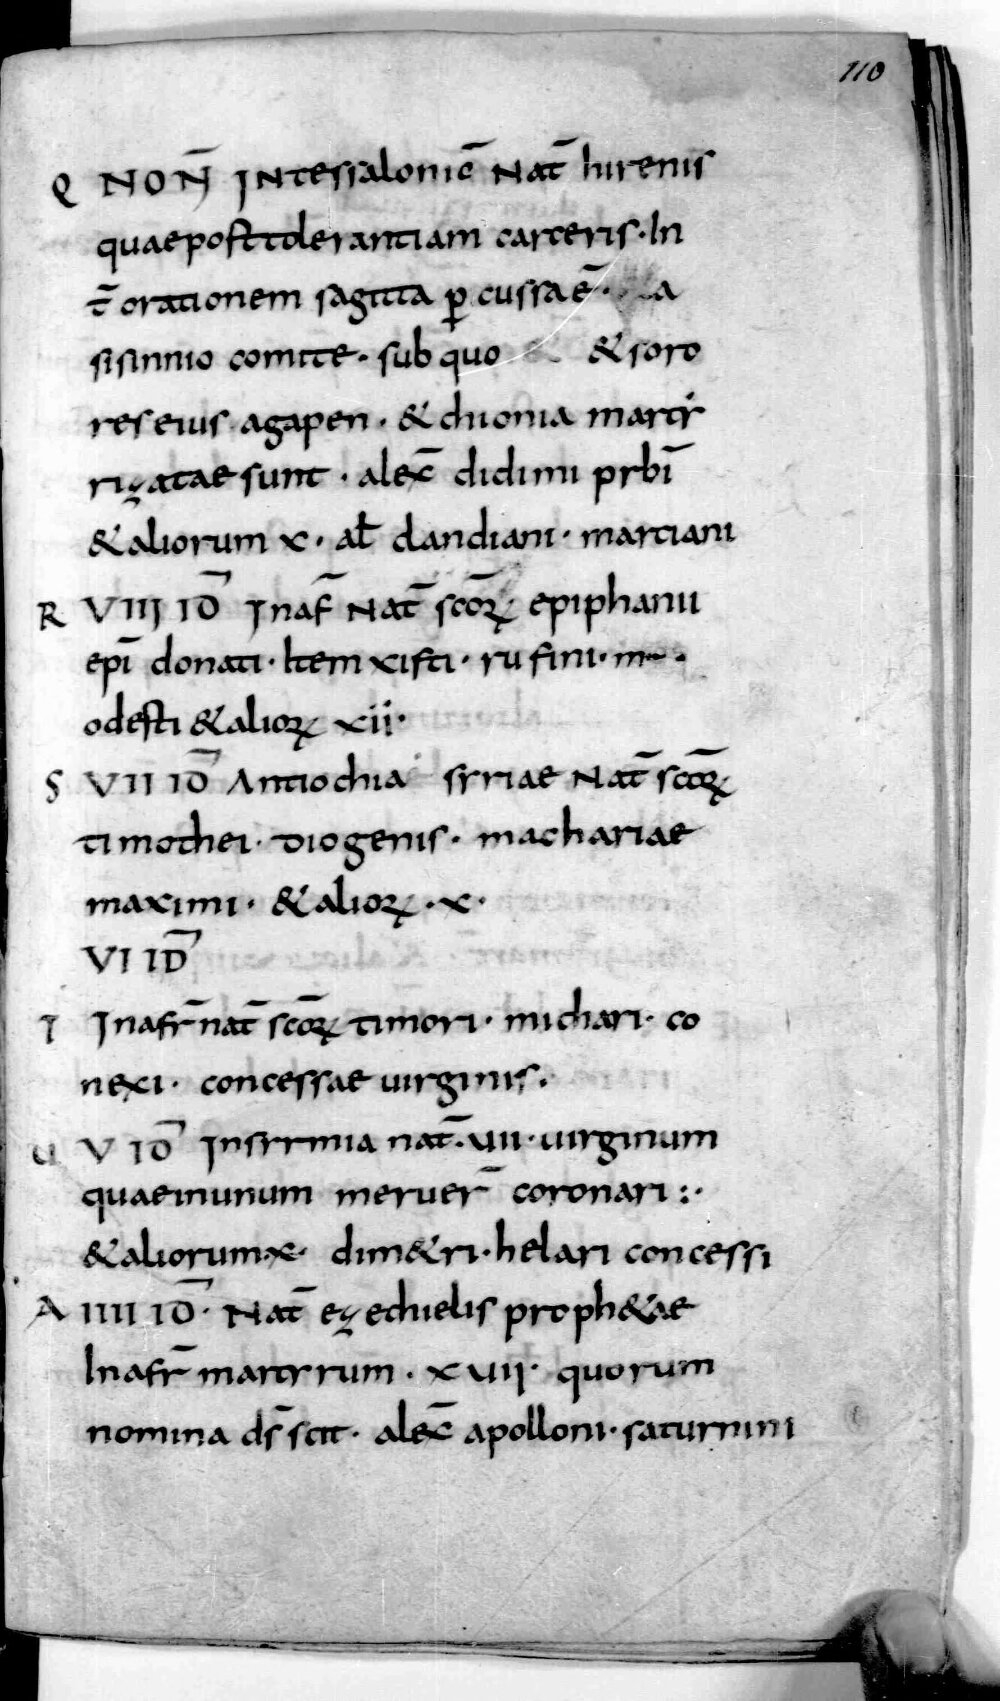 110
Q NOÑ INtessalonic̄ Nat̄ hirenis
quae post tolerantiam carceris · In
t̄ orationem sagitta p̱ cussa ē · a
sisinnio comite · sub quo & soro
res eius · agapen · & chionia martẏ
rizatae sunt · alex̄ didimi prbī
& aliorum x · al̄ clandiani · martiani
R VIII ID̄ In af̄ Nat̄ scōꝝ · epiphanii
epī donati · Item xisti · rufini · m ·
odesti & alioꝝ xii ·
S VII ID̄ Antiochia syriae Nat̄ scōꝝ
timothei · diogenis · machariae
maximi · & alioꝝ · x ·
VI ID̄
T In afr̄ nat̄ scōꝝ timori · michari · co
nexi · concessae uirginis ·
U V ID̄ In syrmia nat̄ · uii · uirginum
quae in unum meruer̄ coronari :·
& aliorum · x · dim&ri · helari concessi
A IIII ID̄ · Nat̄ ezechielis proph&ae
In afr̄ martyrum · xuii · quorum
nomina ds̄ scit · alex̄ apolloni · saturnini